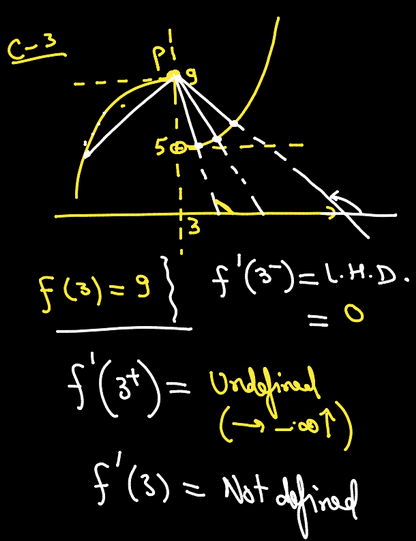 C-3
P
9
5
3
f(3) = 9
f'(3⁻) = L.H.D.
= 0
f'(3⁺) = Undefined
(→ -∞↑)
f'(3) = Not defined